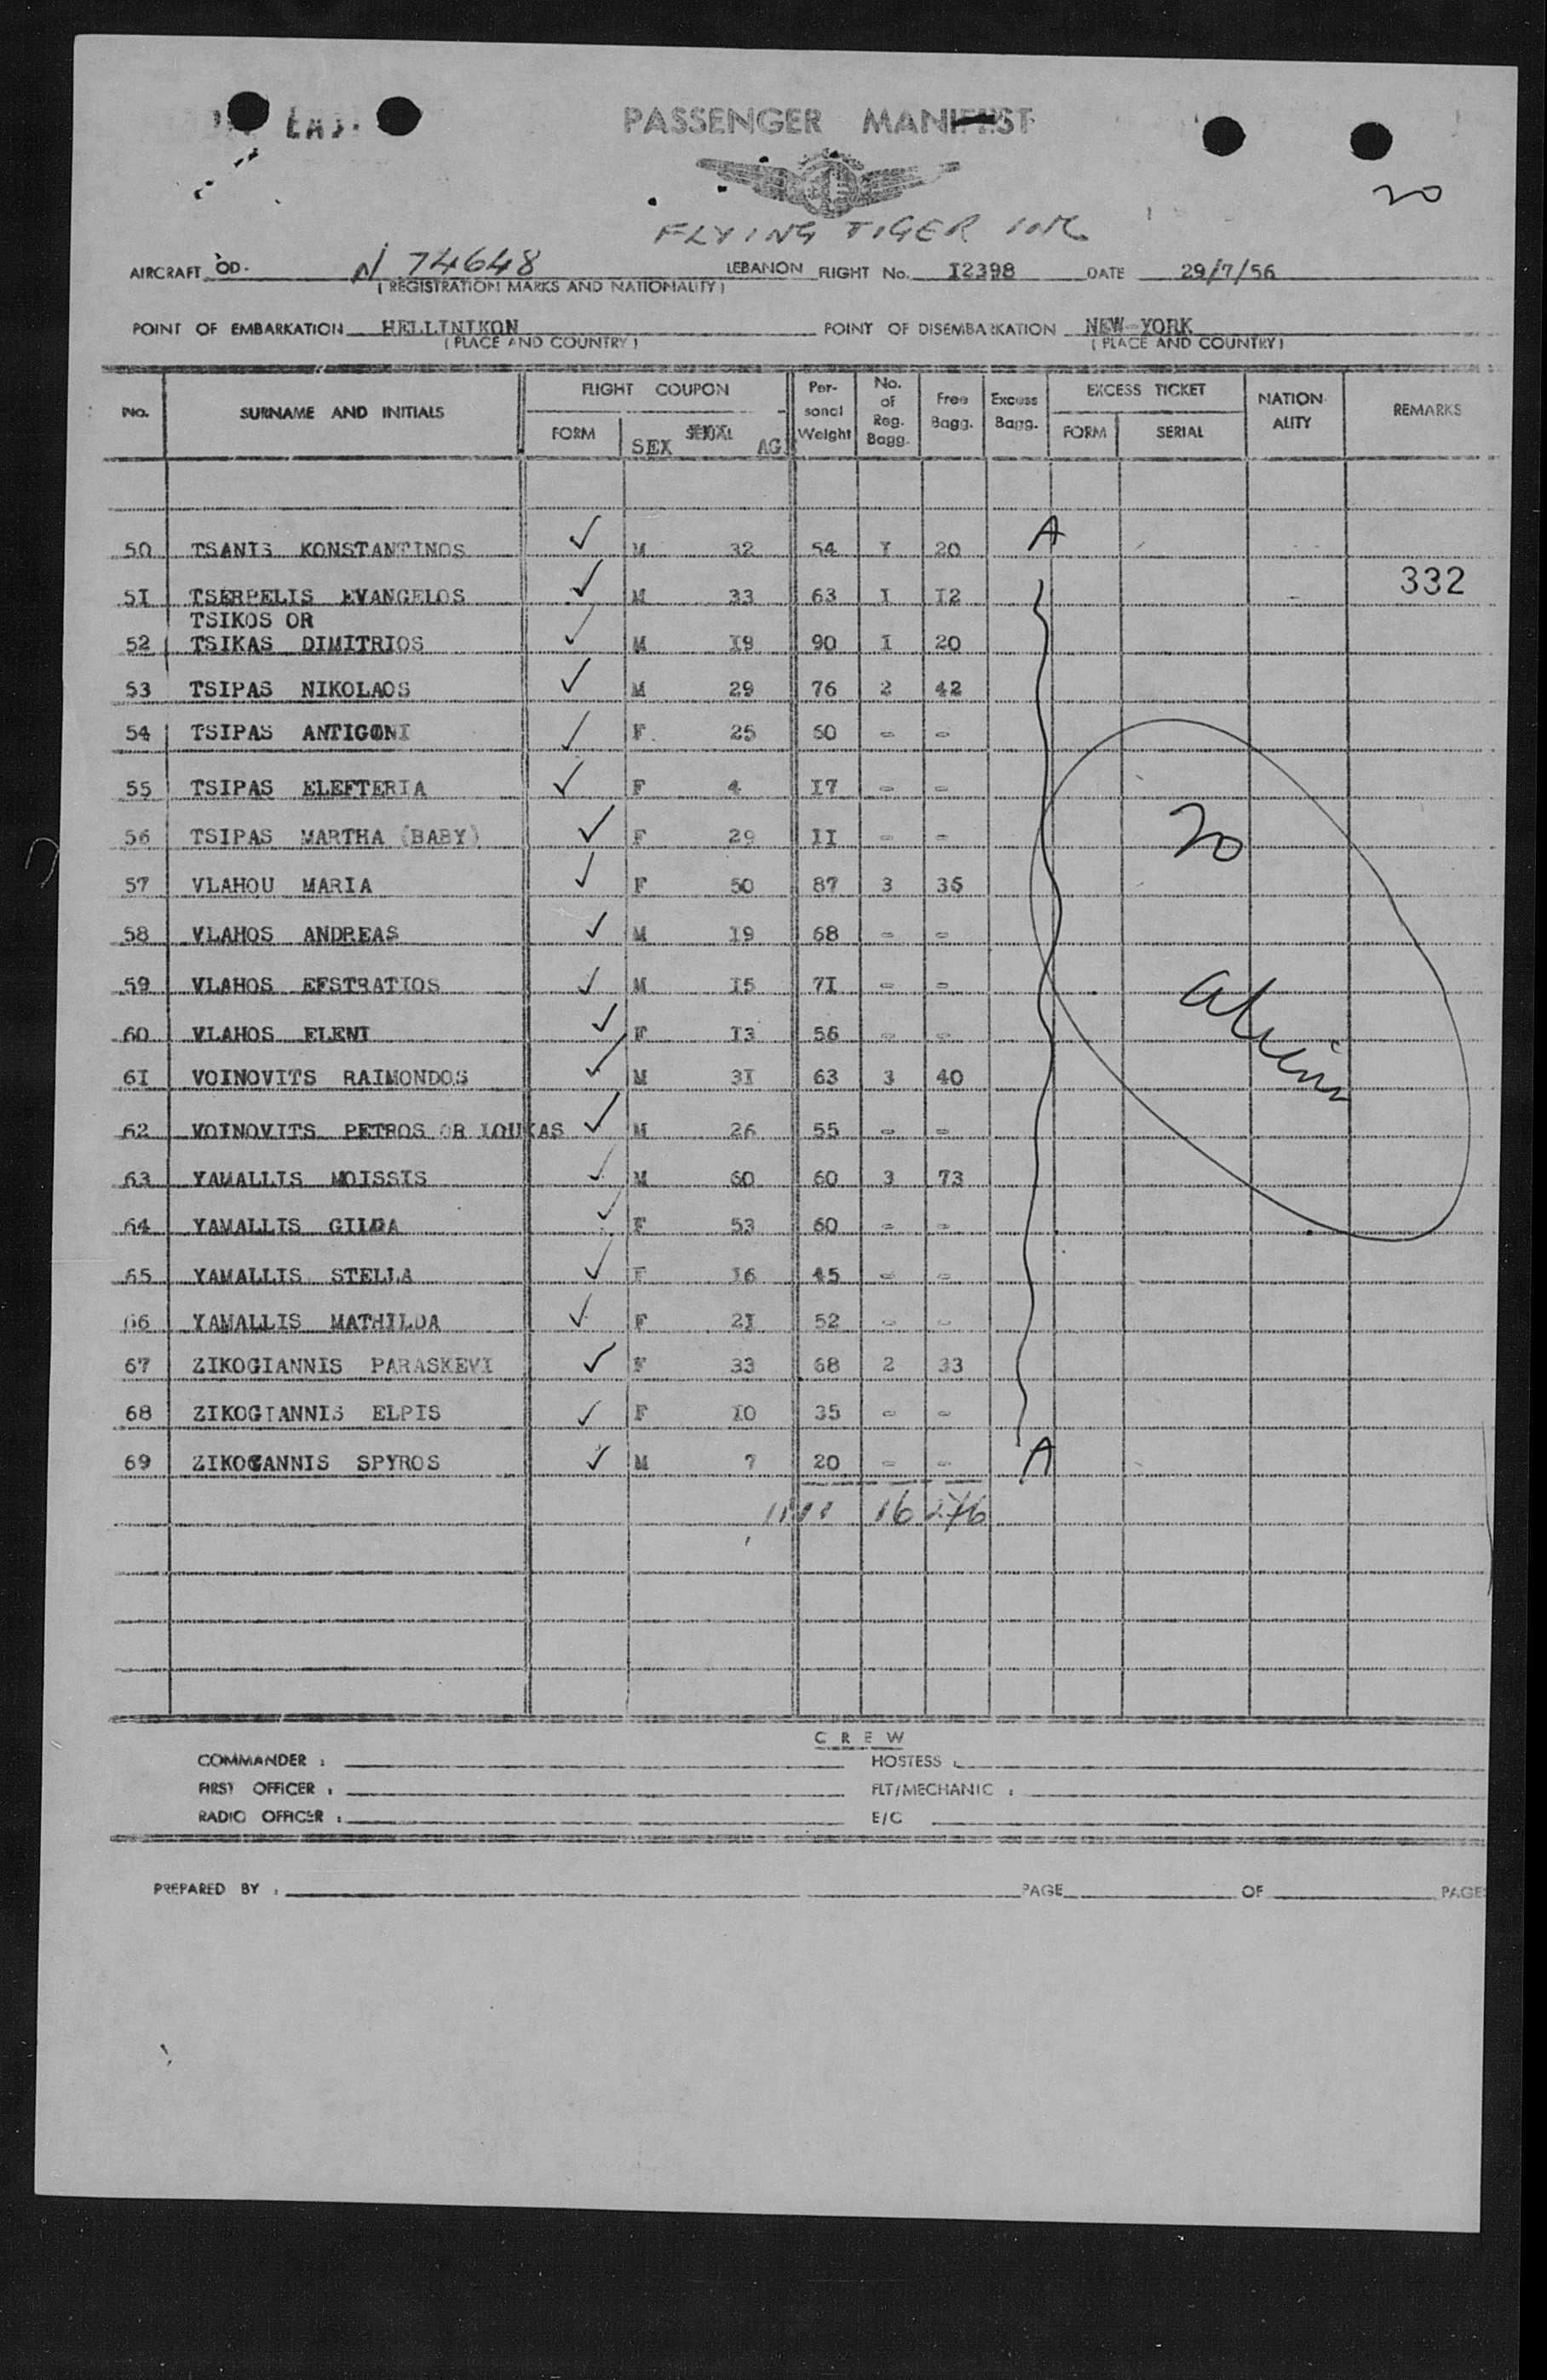 PASSENGER MANIFEST
20
FLYING TIGER INC
AIRCRAFT OD- N 74648 LEBANON FLIGHT No. I2398 DATE 29/7/56
( REGISTRATION MARKS AND NATIONALITY )
POINT OF EMBARKATION HELLINIKON POINT OF DISEMBARKATION NEW-YORK
( PLACE AND COUNTRY ) ( PLACE AND COUNTRY )
No. SURNAME AND INITIALS FLIGHT COUPON FORM SERIAL SEX AG Per-sonal Weight No. of Reg. Bagg. Free Bagg. Excess Bagg. EXCESS TICKET FORM SERIAL NATION-ALITY REMARKS
50 TSANIS KONSTANTINOS ✓ M 32 54 I 20 A
332
5I TSERPELIS EVANGELOS ✓ M 33 63 I I2
TSIKOS OR
52 TSIKAS DIMITRIOS ✓ M I9 90 I 20
53 TSIPAS NIKOLAOS ✓ M 29 76 2 42
54 TSIPAS ANTIGONI ✓ F 25 50 - -
55 TSIPAS ELEFTERIA ✓ F 4 I7 - -
56 TSIPAS MARTHA (BABY) ✓ F 29 II - -
20
57 VLAHOU MARIA ✓ F 50 87 3 36
58 VLAHOS ANDREAS ✓ M I9 68 - -
59 VLAHOS EFSTRATIOS ✓ M I5 7I - -
60 VLAHOS ELENI ✓ F I3 56 - -
6I VOINOVITS RAIMONDOS ✓ M 3I 63 3 40
62 VOINOVITS PETROS OR LOUKAS ✓ M 26 55 - -
63 YAMALLIS MOISSIS ✓ M 60 60 3 73
64 YAMALLIS GILDA ✓ F 53 60 - -
65 YAMALLIS STELLA ✓ F I6 45 - -
66 YAMALLIS MATHILDA ✓ F 2I 52 - -
67 ZIKOGIANNIS PARASKEVI ✓ F 33 68 2 33
68 ZIKOGIANNIS ELPIS ✓ F I0 35 - -
69 ZIKOGANNIS SPYROS ✓ M 7 20 - - A
16 276
CREW
COMMANDER : HOSTESS :
FIRST OFFICER : FLT/MECHANIC :
RADIO OFFICER : E/C
PREPARED BY : PAGE OF PAGES